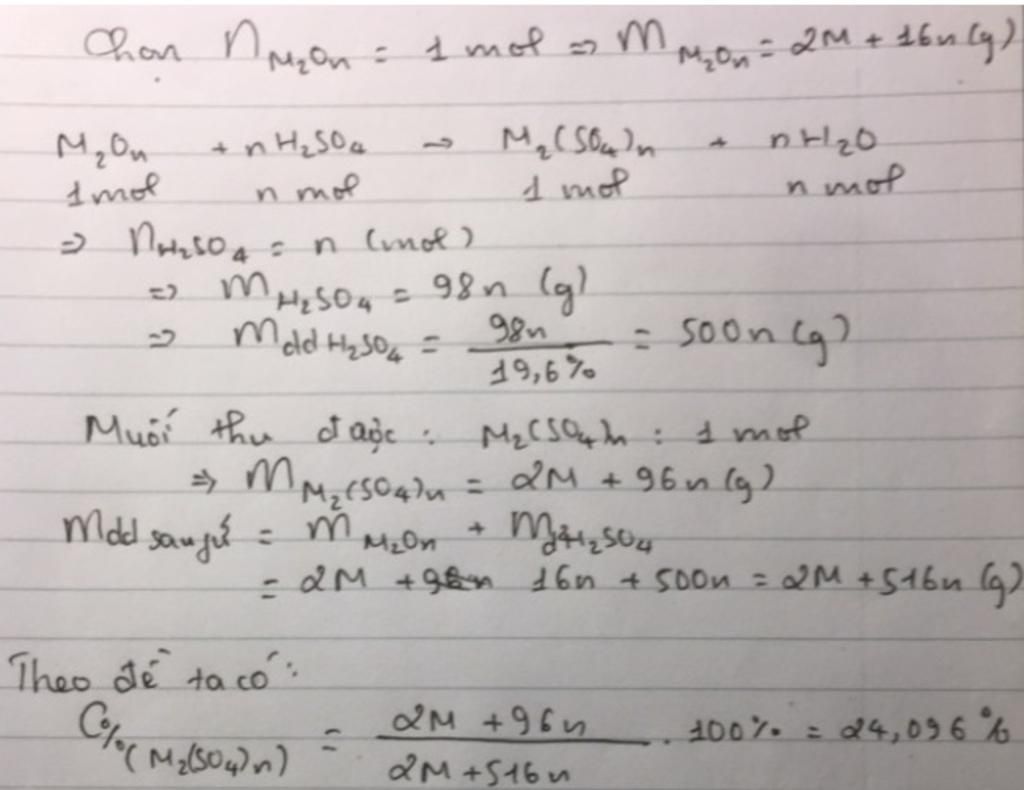 Chọn n M₂Oₙ = 1 mol => m M₂Oₙ = 2M + 16n (g)
M₂Oₙ + nH₂SO₄ → M₂(SO₄)ₙ + nH₂O
1 mol n mol 1 mol n mol
=> n H₂SO₄ = n (mol)
=> m H₂SO₄ = 98n (g)
=> m dd H₂SO₄ = 98n / 19,6% = 500n (g)
Muối thu được : M₂(SO₄)ₙ : 1 mol
=> m M₂(SO₄)ₙ = 2M + 96n (g)
m dd sau pứ = m M₂Oₙ + m dd H₂SO₄
= 2M + 16n + 500n = 2M + 516n (g)
Theo đề ta có :
C% (M₂(SO₄)ₙ) = (2M + 96n) / (2M + 516n) . 100% = 24,096%